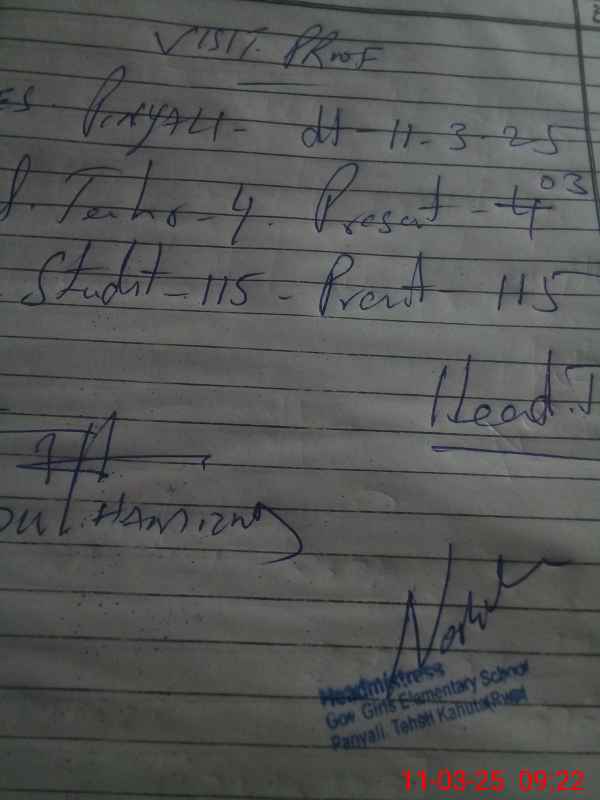 VISIT. PRoof
ES. PINYALI - dt - 11 - 3 - 25
- 4. Present - 4 03
Studnt - 115 - Prent 115
Head.T
Headmistress
Gov Girls Elementary School
Panyali Tehsil Kahuta Rwp
11-03-25 09:22